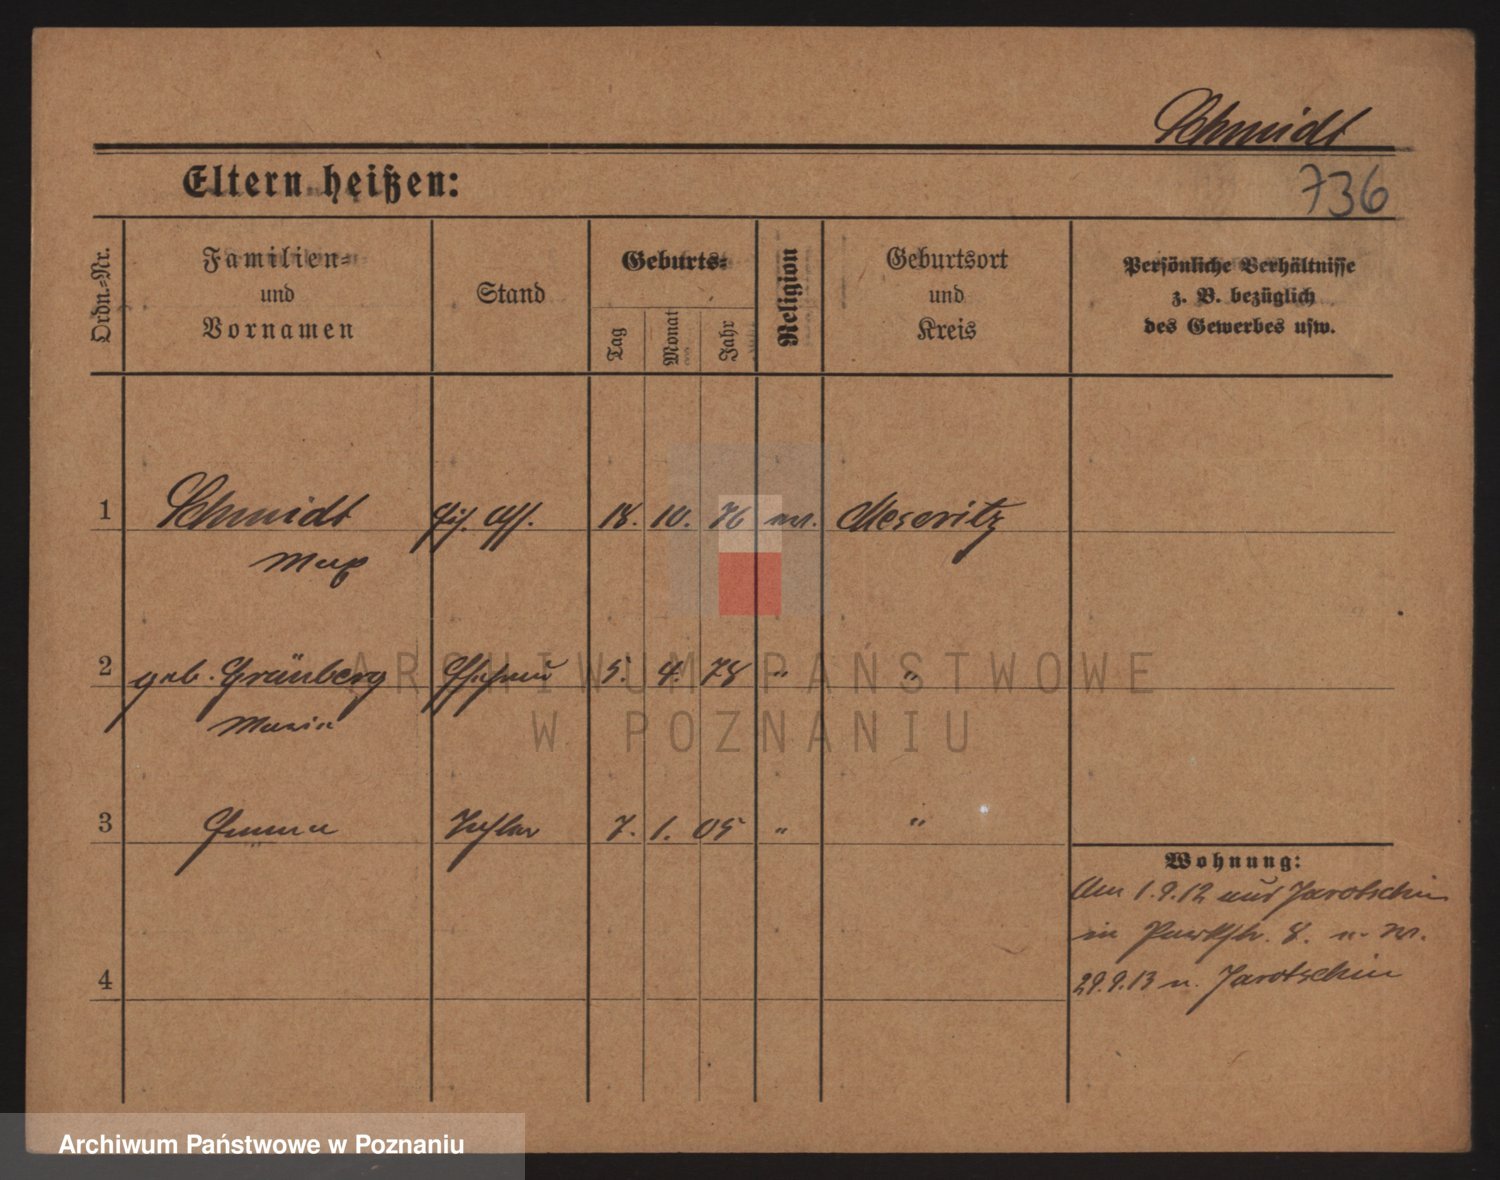 Schmidt
Eltern heißen:
736
Ordn.-Nr.
Familien-
und
Vornamen
Stand
Geburts-
Tag
Monat
Jahr
Religion
Geburtsort
und
Kreis
Persönliche Verhältnisse
z. B. bezüglich
des Gewerbes usw.
1 Schmidt 18. 10. 76 ev. Meseritz
Max
2 geb. Grünberg Ehefrau 5. 4. 78 " "
Maria
3 Emma Tochter 7. 1. 05 " "
4
Wohnung:
Am 1.9.12 aus Jarotschin
in Parkstr. 8.
29.9.13 n. Jarotschin
ARCHIWUM PAŃSTWOWE
W POZNANIU
Archiwum Państwowe w Poznaniu